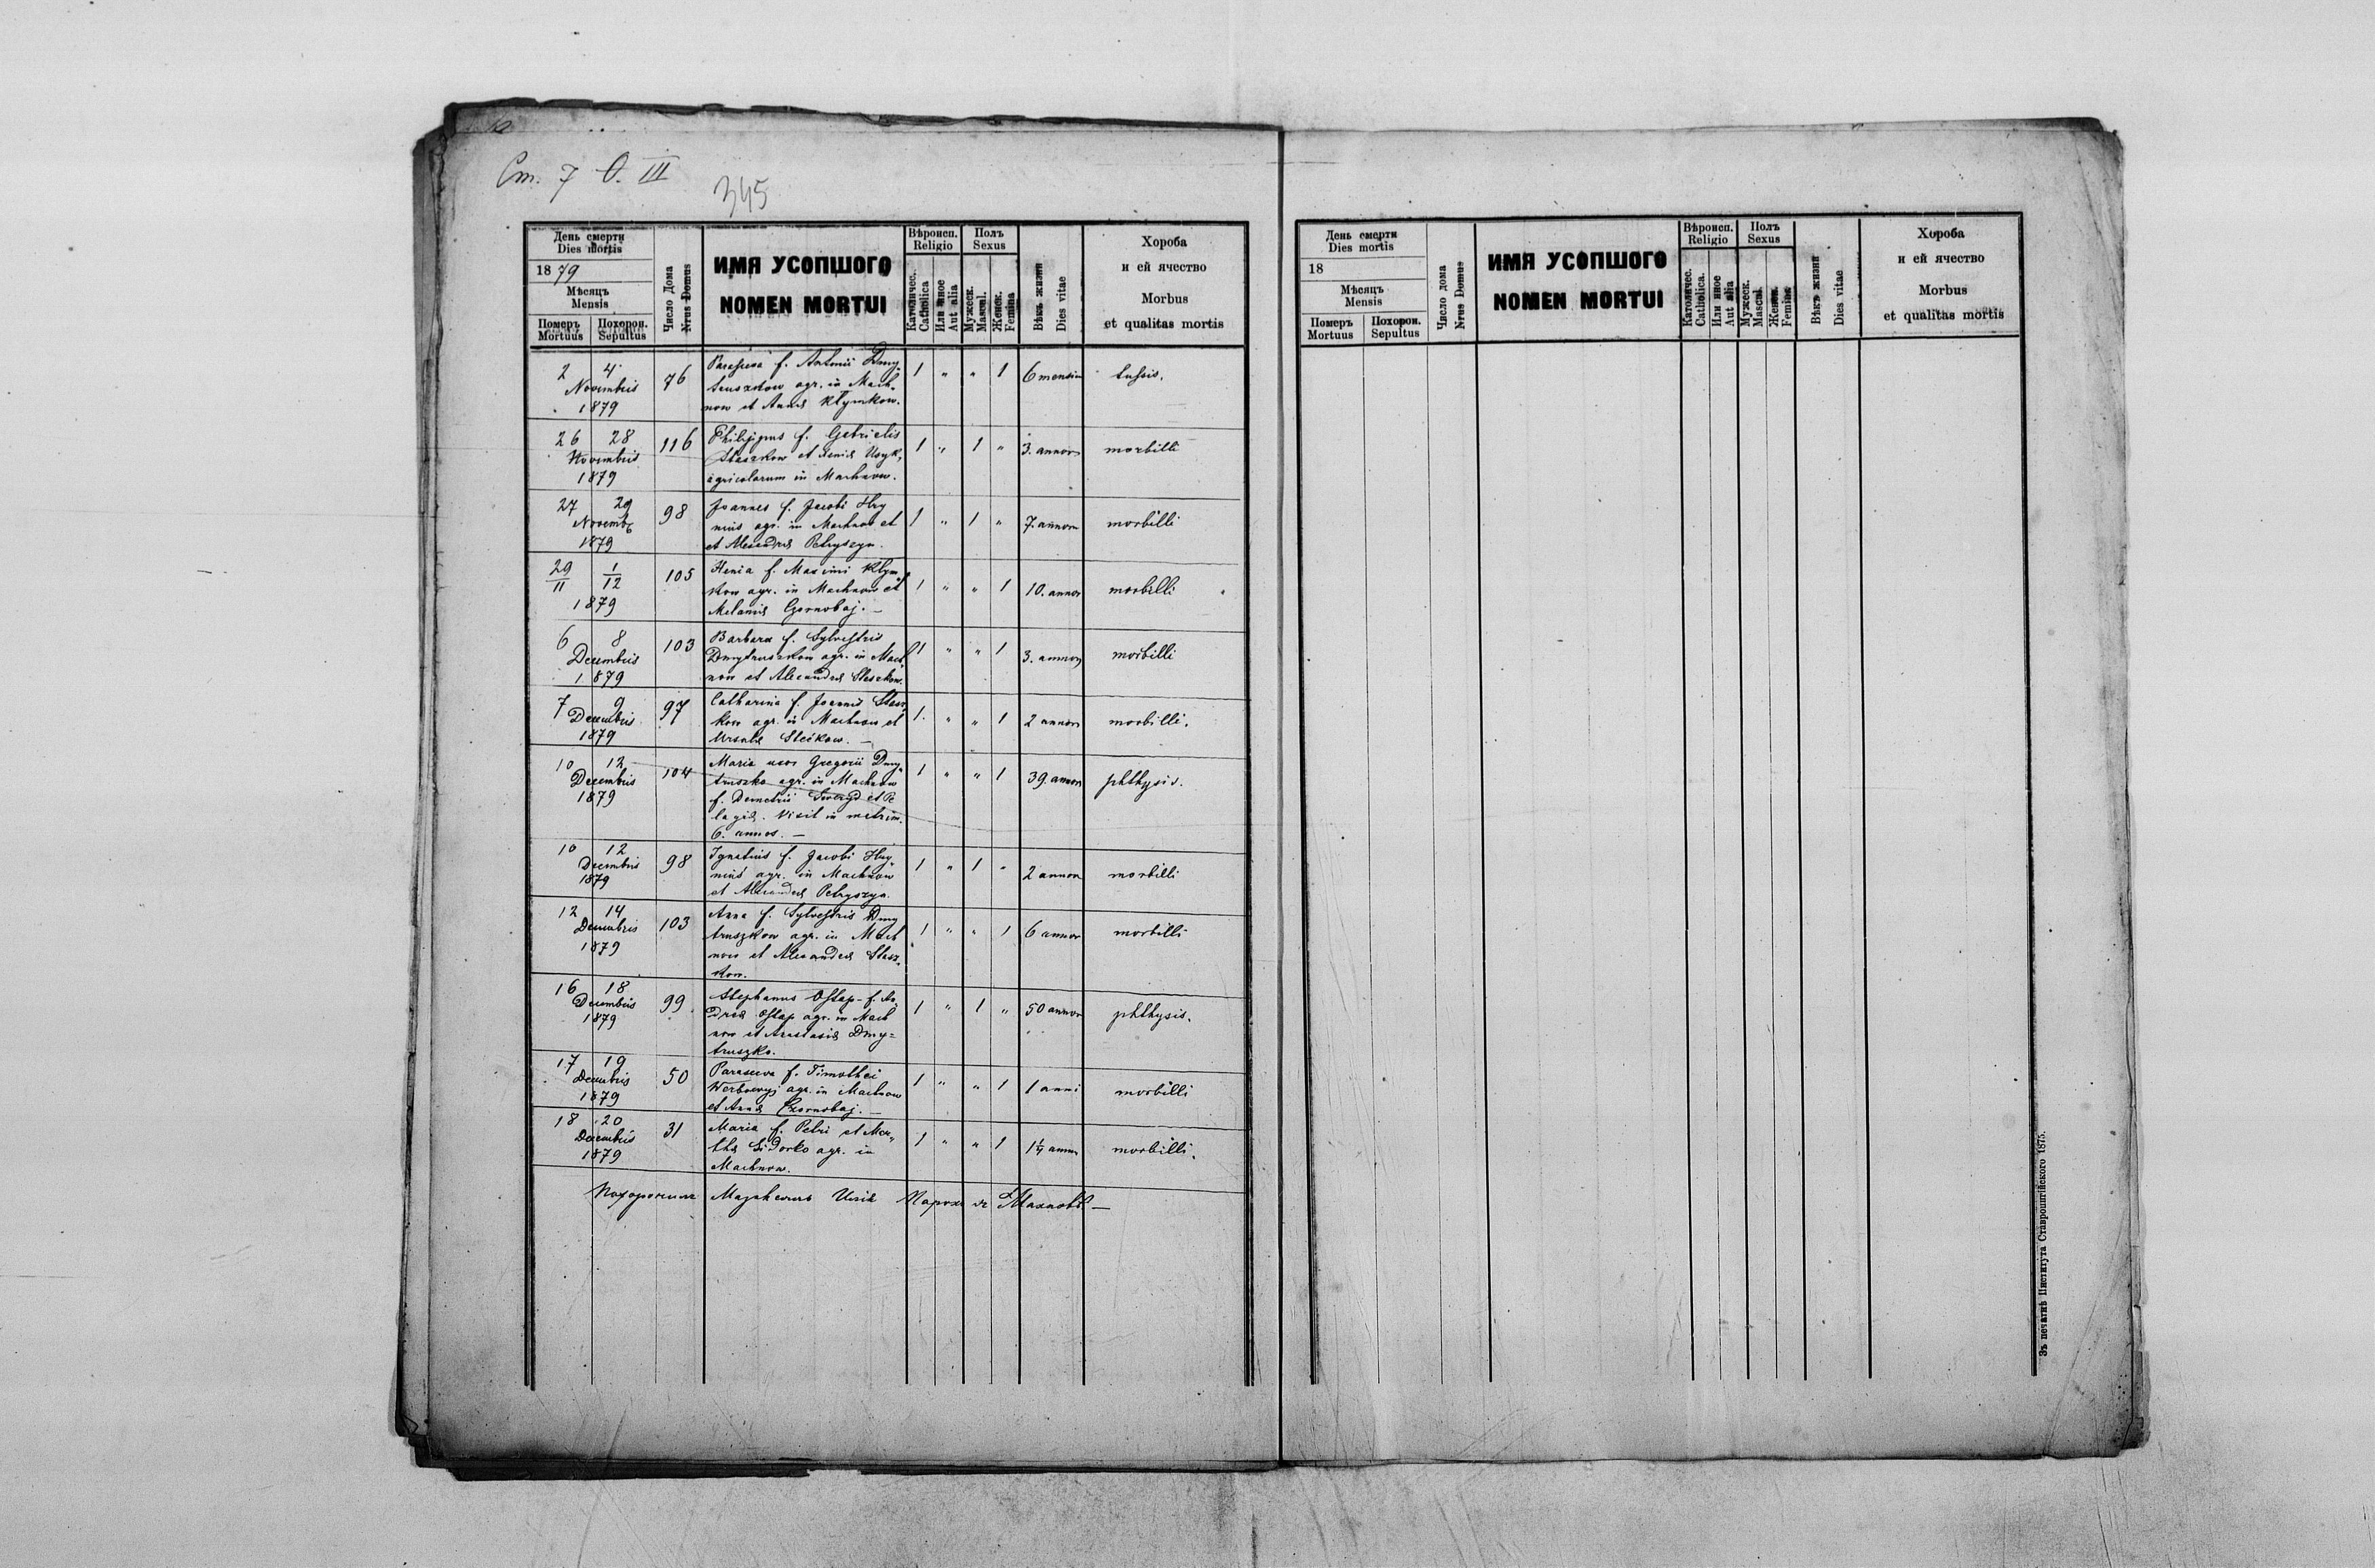 Ст. 7 О. III
345
День смерти
Dies mortis
1879
Мѣсяцъ
Mensis
Померъ
Mortuus
Похорон.
Sepultus
Число Дома
Nrus Domus
ИМЯ УСОПШОГО
NOMEN MORTUI
Вѣроисп.
Religio
Католичес.
Catholica
Или иное
Aut alia
Полъ
Sexus
Мужеск.
Mascul.
Женск.
Femina
Вѣкъ жизни
Dies vitae
Хороба
и ей ячество
Morbus
et qualitas mortis
2 4 76 Parasceva f. Antonii Dmy- 1 " " 1 6 mensium tussis.
Novembris truszkow agr. in Mach-
1879 now et Annæ Kłymkow.
26 28 116 Philippus f. Gabrielis 1 " 1 " 3. annor morbilli
Novembris Staszkow et Usyk,
1879 agricolarum in Machnow.
27 29 98 Joannes f. Jacobi Hry 1 " 1 " 7. annor morbilli
Novemb. niuś agr. in Machnow et
1879 et Alexandræ Petryszyn.
29/11 1/12 105 Henia f. Maximi Kłym 1 " " 1 10. annor morbilli
1879 kow agr. in Machnow et
Melaniæ Czornobaj. —
6 8 103 Barbara f. Sylvestris 1 " " 1 3. annor morbilli
Decembris Dmytruszkow agr. in Mach-
1879 now et Alexandræ Staszkow.
7 9 97 Catharina f. Joannis Stasz 1. " " 1 2 annor morbilli.
Decembris kow agr. in Machnow et
1879 Ursulæ Stećkow. —
10 12 104 Maria uxor Gregorii Dmy- 1 " " 1 39. annor phthysis.
Decembris truszko agr. in Machnow
1879 f. Demetrii et Pe
lagiæ. Vixit in matrim.
6. annos. —
10 12 98 Ignatius f. Jacobi Hry- 1 " 1 " 2 annor morbilli
Decembris niuś agr. in Machnow
1879 et Alexandræ Petryszyn.
12 14 103 Anna f. Sylvestris Dmy 1 " " 1 6 annor morbilli
Decembris truszkow agr. in Mach
1879 now et Alexandræ Stasz-
kow.
16 18 99 Stephanus Ostap - f. An- 1 " 1 " 50 annor phthysis.
Decembris dreæ Ostap agr. in Mach
1879 now et Anastasiæ Dmy=
truszko.
17 19 50 Parasceva f. Timothei 1 " " 1 1 anni morbilli
Decembris Werbowyj agr. in Machnow
1879 et Annæ Czornobaj. —
18 20 31 Maria f. Petri et Mar- 1 " " 1 annor morbilli.
Decembris thæ Sidorko agr. in
1879 Machnow.
Похоронилъ Парохъ въ Махновѣ —
День смерти
Dies mortis
18
Мѣсяцъ
Mensis
Померъ
Mortuus
Похорон.
Sepultus
Число дома
Nrus Domus
ИМЯ УСОПШОГО
NOMEN MORTUI
Вѣроисп.
Religio
Католичес.
Catholica.
Или иное
Aut alia
Полъ
Sexus
Мужеск.
Mascul.
Женск.
Femina
Вѣкъ жизни
Dies vitae
Хороба
и ей ячество
Morbus
et qualitas mortis
Зъ печатнѣ Института Ставропигійского 1875.